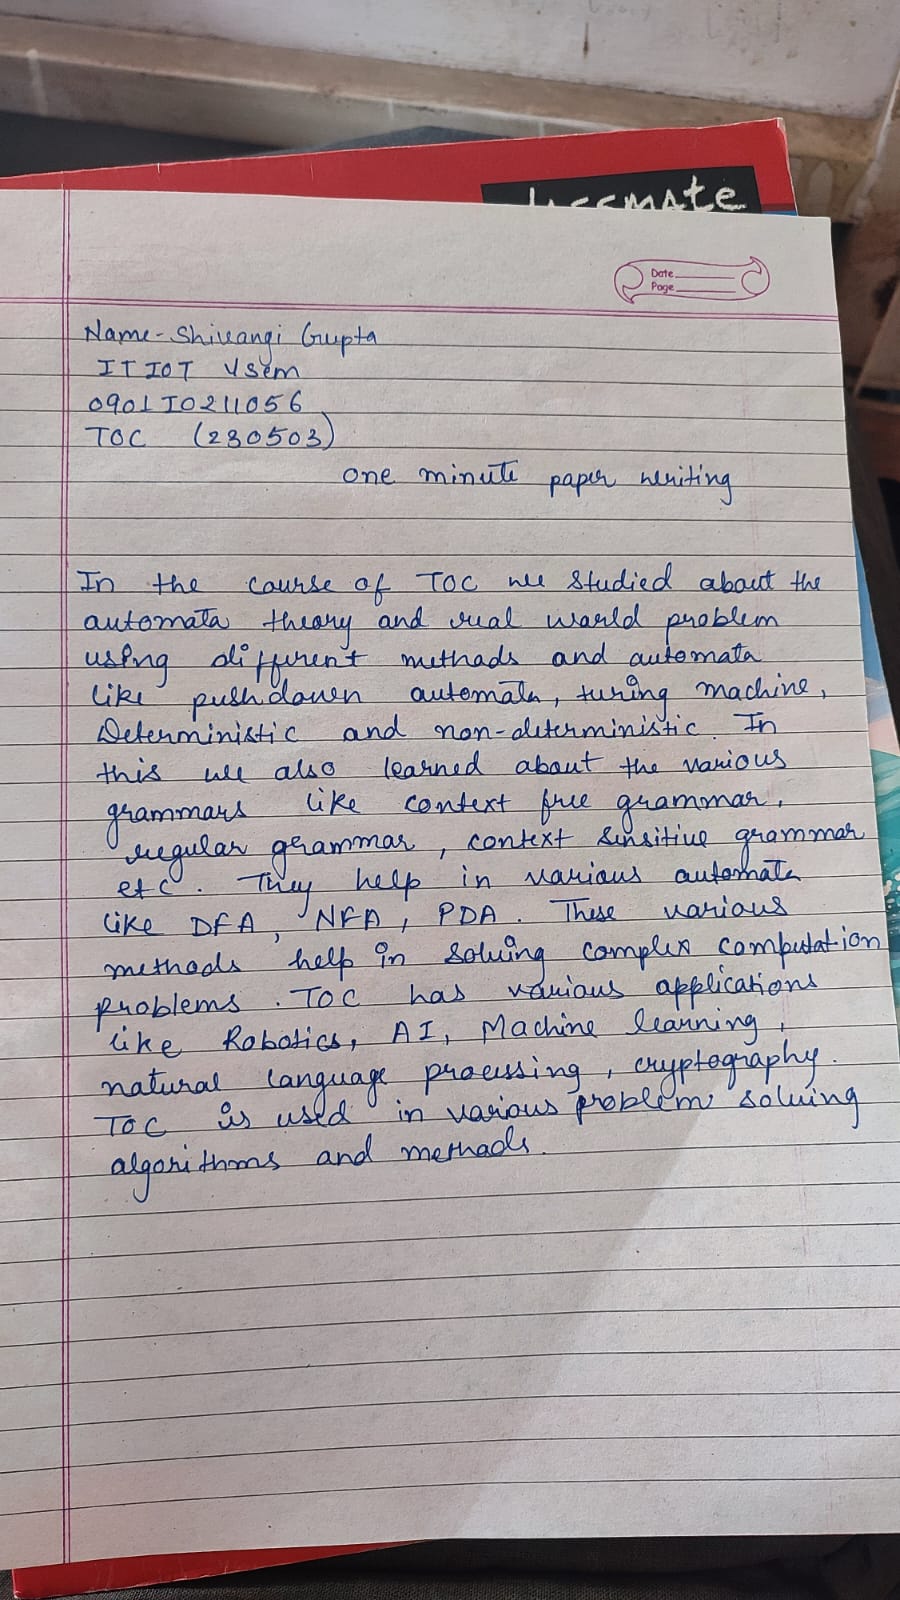 classmate
Date
Page
Name - Shivangi Gupta
IT IOT V sem
0901IO211056
TOC (230503)
one minute paper writing
In the course of TOC we studied about the
automata theory and real world problem
using different methods and automata
like pushdown automata, turing machine,
Deterministic and non-deterministic. In
this we also learned about the various
grammars like context free grammar,
regular grammar, context sensitive grammar
etc. They help in various automata
like DFA, NFA, PDA. These various
methods help in solving complex computation
problems. TOC has various applications
like Robotics, AI, Machine learning,
natural language processing, cryptography.
TOC is used in various problem solving
algorithms and methods.